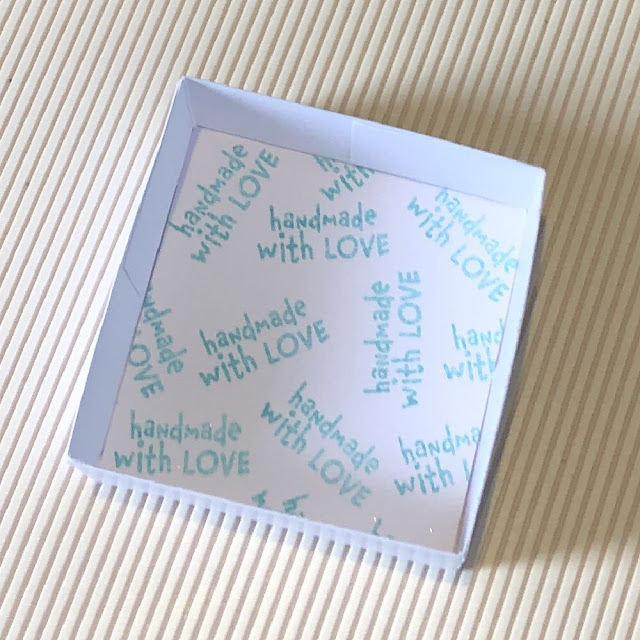 handmade
with LOVE
with
handmade
with LOVE
handmade
with LOVE
handmade
with LOVE
handmade
with LOVE
LOVE
with
handmade
with LOVE
handmade
with LOVE
with